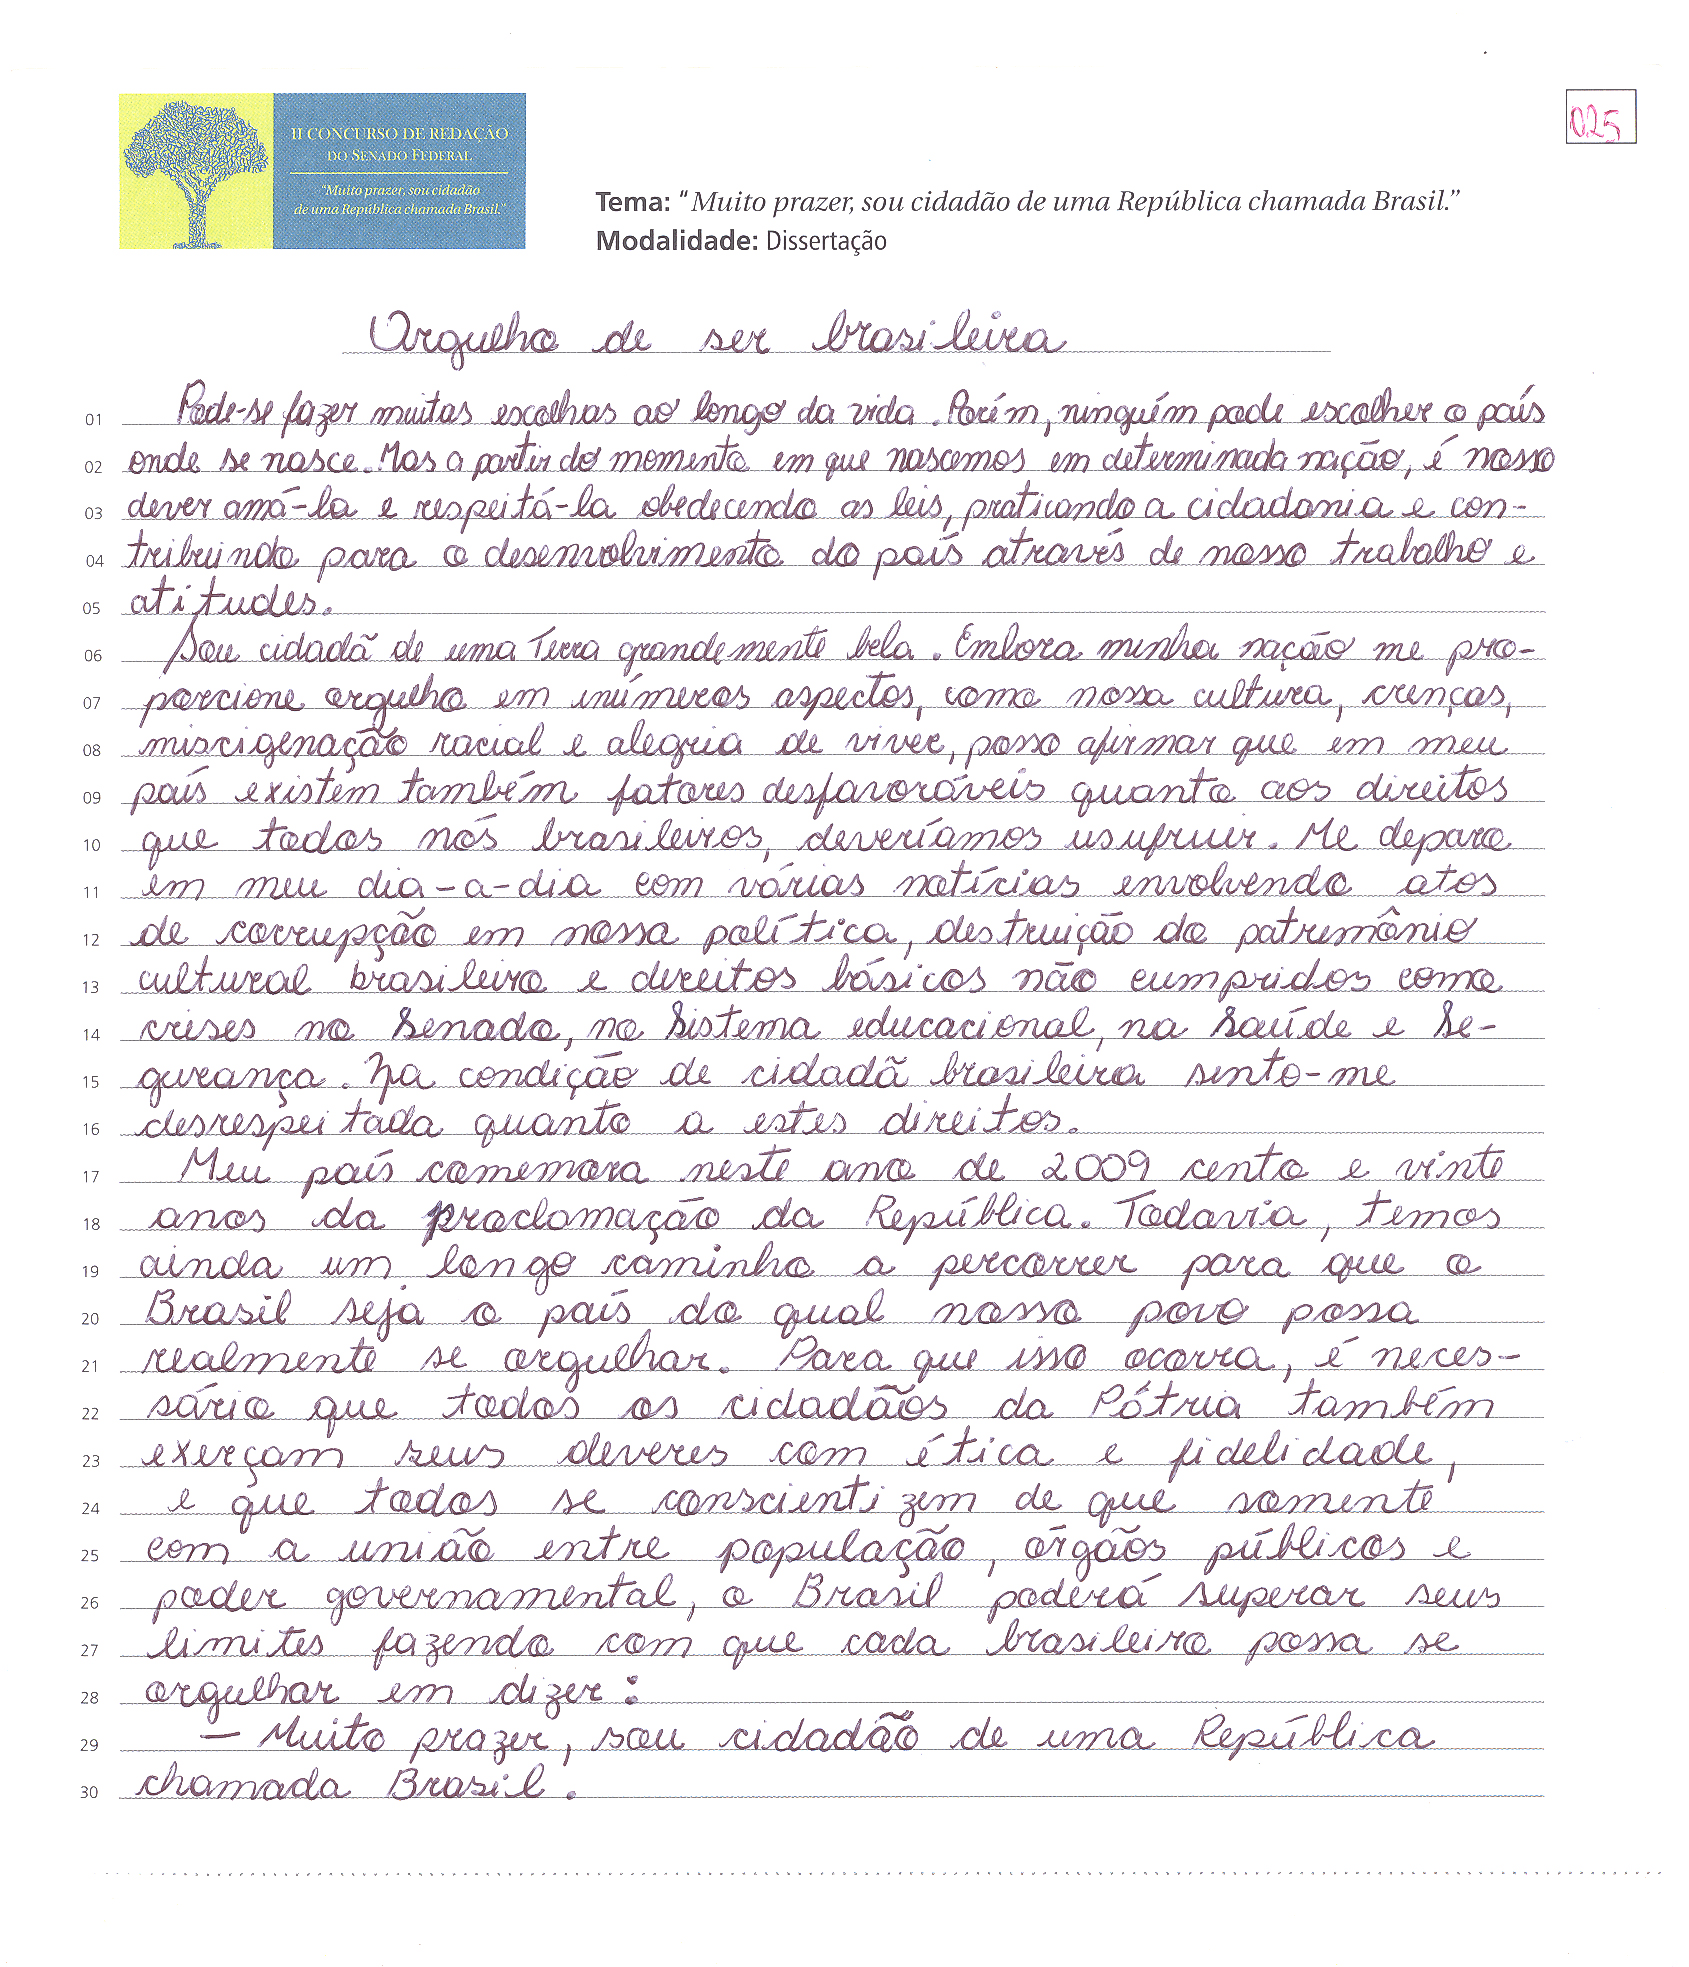 II CONCURSO DE REDAÇÃO
DO SENADO FEDERAL
"Muito prazer, sou cidadão
de uma República chamada Brasil."
025
Tema: "Muito prazer, sou cidadão de uma República chamada Brasil."
Modalidade: Dissertação
Orgulho de ser brasileira
01 Pode-se fazer muitas escolhas ao longo da vida. Porém, ninguém pode escolher o país
02 onde se nasce. Mas a partir do momento em que nascemos em determinada nação, é nosso
03 dever amá-la e respeitá-la obedecendo as leis, praticando a cidadania e con-
04 tribuindo para o desenvolvimento do país através de nosso trabalho e
05 atitudes.
06 Sou cidadã de uma Terra grandemente bela. Embora minha nação me pro-
07 porcione orgulho em inúmeros aspectos, como nossa cultura, crenças,
08 miscigenação racial e alegria de viver, posso afirmar que em meu
09 país existem também fatores desfavoráveis quanto aos direitos
10 que todos nós brasileiros, deveríamos usufruir. Me deparo
11 em meu dia-a-dia com várias notícias envolvendo atos
12 de corrupção em nossa política, destruição do patrimônio
13 cultural brasileiro e direitos básicos não cumpridos como
14 crises no Senado, no Sistema educacional, na Saúde e Se-
15 gurança. Na condição de cidadã brasileira sinto-me
16 desrespeitada quanto a estes direitos.
17 Meu país comemora neste ano de 2009 cento e vinte
18 anos da proclamação da República. Todavia, temos
19 ainda um longo caminho a percorrer para que o
20 Brasil seja o país do qual nosso povo possa
21 realmente se orgulhar. Para que isso ocorra, é neces-
22 sário que todos os cidadãos da Pátria também
23 exerçam seus deveres com ética e fidelidade,
24 e que todos se conscientizem de que somente
25 com a união entre população, órgãos públicos e
26 poder governamental, o Brasil poderá superar seus
27 limites fazendo com que cada brasileiro possa se
28 orgulhar em dizer:
29 — Muito prazer, sou cidadão de uma República
30 chamada Brasil.